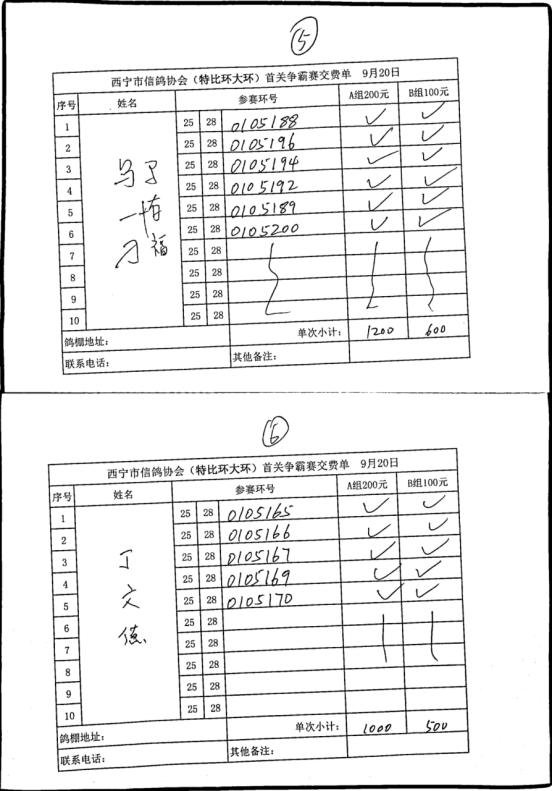 ⑤
西宁市信鸽协会（特比环大环）首关争霸赛交费单 9月20日
序号 姓名 参赛环号 A组200元 B组100元
1 25 28 0105188 ✓ ✓
2 25 28 0105196 ✓ ✓
3 25 28 0105194 ✓ ✓
4 25 28 0105192 ✓ ✓
5 25 28 0105189 ✓ ✓
6 25 28 0105200 ✓ ✓
7 25 28
8 25 28
9 25 28
10 25 28
鸽棚地址： 单次小计： 1200 600
联系电话： 其他备注：
⑥
西宁市信鸽协会（特比环大环）首关争霸赛交费单 9月20日
序号 姓名 参赛环号 A组200元 B组100元
丁文德
1 25 28 0105165 ✓ ✓
2 25 28 0105166 ✓ ✓
3 25 28 0105167 ✓ ✓
4 25 28 0105169 ✓ ✓
5 25 28 0105170 ✓ ✓
6 25 28
7 25 28
8 25 28
9 25 28
10 25 28
鸽棚地址： 单次小计： 1000 500
联系电话： 其他备注：